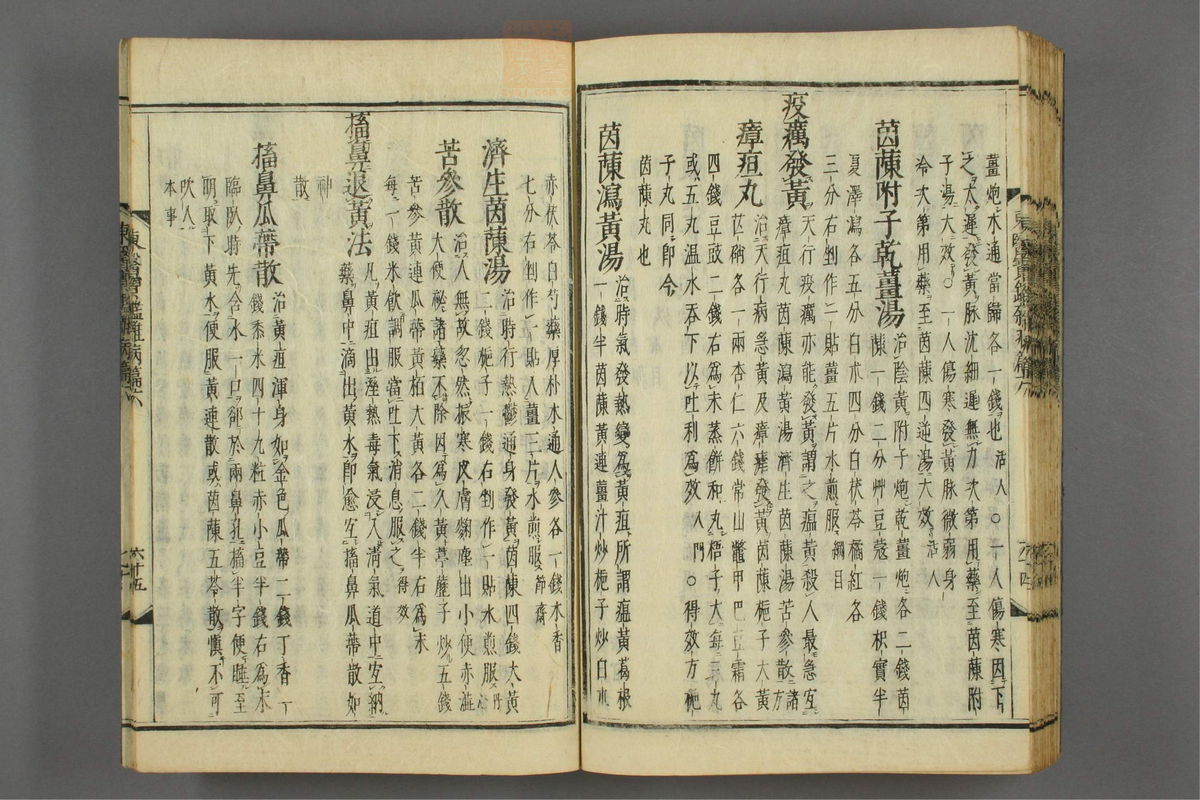 薑炮木通當歸各一錢也活人○一人傷寒因下
之太遲發黃脉沈細遲無力次第用藥至茵蔯附
子湯大效○一人傷寒發黃脉微弱身
冷次第用藥至茵蔯四逆湯大效活人
茵蔯附子乾薑湯治陰黃附子炮乾薑炮各二錢茵
蔯一錢二分艸豆蔲一錢枳實半
夏澤瀉各五分白朮四分白茯苓橘紅各
三分右剉作一貼薑五片水煎服綱目
疫癘發黃天行疫癘亦能發黃謂之瘟黃殺人最急宜
瘴疸丸茵蔯瀉黃湯濟生茵蔯湯苦參散諸方
瘴疸丸治天行病急黃及瘴瘧發黃茵蔯梔子大黃
芒硝各一兩杏仁六錢常山鱉甲巴豆霜各
四錢豆豉二錢右爲末蒸餠和丸梧子大每三丸
或五丸溫水呑下以吐利爲效入門○得效方梔
子丸同卽今
茵蔯丸也
茵蔯瀉黃湯治時氣發熱變爲黃疸所謂瘟黃葛根
一錢半茵蔯黃連薑汁炒梔子炒白朮
赤茯苓白芍藥厚朴木通人參各一錢木香
七分右剉作一貼入薑三片水煎服節齋
濟生茵蔯湯治時行熱鬱通身發黃茵蔯四錢大黃
二錢梔子一錢右剉作一貼水煎服丹心
苦參散治人無故忽然振寒皮膚麴塵出小便赤澁
大便秘諸藥不除因爲久黃葶藶子炒五錢
苦參黃連瓜蔕黃栢大黃各二錢半右爲末
每一錢米飮調服當吐下消息服之得效
搐鼻退黃法凡黃疸出溼熱毒氣浸入淸氣道中宜納
藥鼻中滴出黃水卽愈宜搐鼻瓜蔕散如
神
散
搐鼻瓜蔕散治黃疸渾身如金色瓜蔕二錢丁香一
錢黍米四十九粒赤小豆半錢右爲末
臨臥時先含水一口却於兩鼻孔搐半字便睡至
明取下黃水便服黃連散或茵蔯五苓散愼不可
吹人
本事
東醫寶鑑雜病篇卷六
六十五